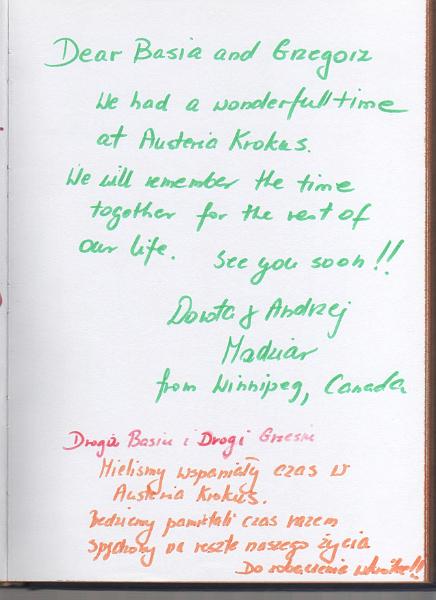 Dear Basia and Grzegorz
We had a wonderfull time
at Austeria Krokus.
We will remember the time
together for the rest of
our life.
See you soon!!
Dorota & Andrzej
from Winnipeg, Canada
Droga Basiu i Drogi Grzesiu
Mielismy wspaniały czas w
Austeria Krokus.
Będziemy pamiętali czas razem
spędzony na resztę naszego życia
Do zobaczenia wkrótce!!